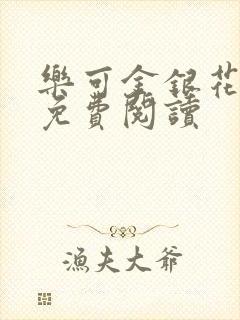 樂可金銀花
免費閱讀
漁夫大爺